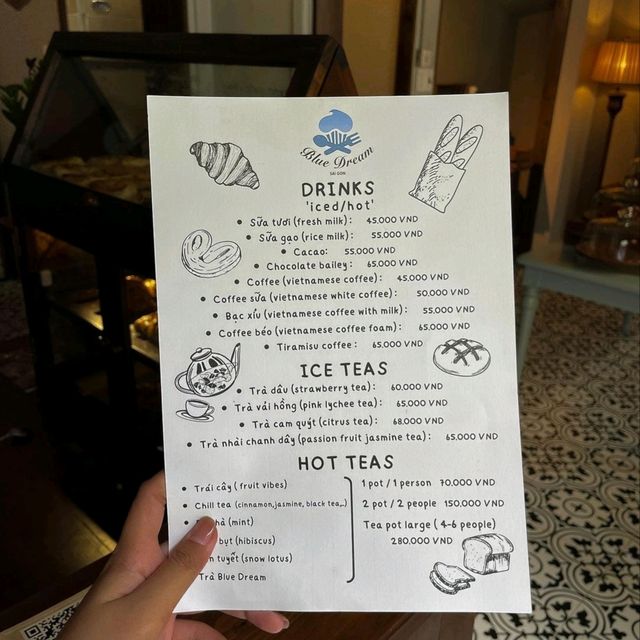 Blue Dream
SAI GON
DRINKS
'iced/hot'
• Sữa tươi (fresh milk): 45.000 VND
• Sữa gạo (rice milk): 55.000 VND
• Cacao: 55.000 VND
• Chocolate bailey: 65.000 VND
• Coffee (vietnamese coffee): 45.000 VND
• Coffee sữa (vietnamese white coffee): 50.000 VND
• Bạc xíu (vietnamese coffee with milk): 55.000 VND
• Coffee béo (vietnamese coffee foam): 65.000 VND
• Tiramisu coffee: 65.000 VND
ICE TEAS
• Trà dâu (strawberry tea): 60.000 VND
• Trà vải hồng (pink lychee tea): 65.000 VND
• Trà cam quýt (citrus tea): 68.000 VND
• Trà nhài chanh dây (passion fruit jasmine tea): 65.000 VND
HOT TEAS
• Trái cây (fruit vibes)
• Chill tea (cinnamon, jasmine, black tea,..)
(mint)
bụt (hibiscus)
tuyết (snow lotus)
Trà Blue Dream
1 pot / 1 person 70.000 VND
2 pot / 2 people 150.000 VND
Tea pot large (4-6 people)
280.000 VND